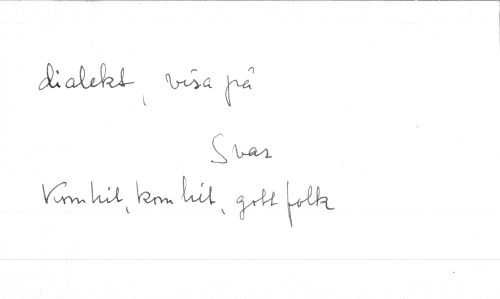 dialekt, visa på
Svar
Kom hit, kom hit, gott folk